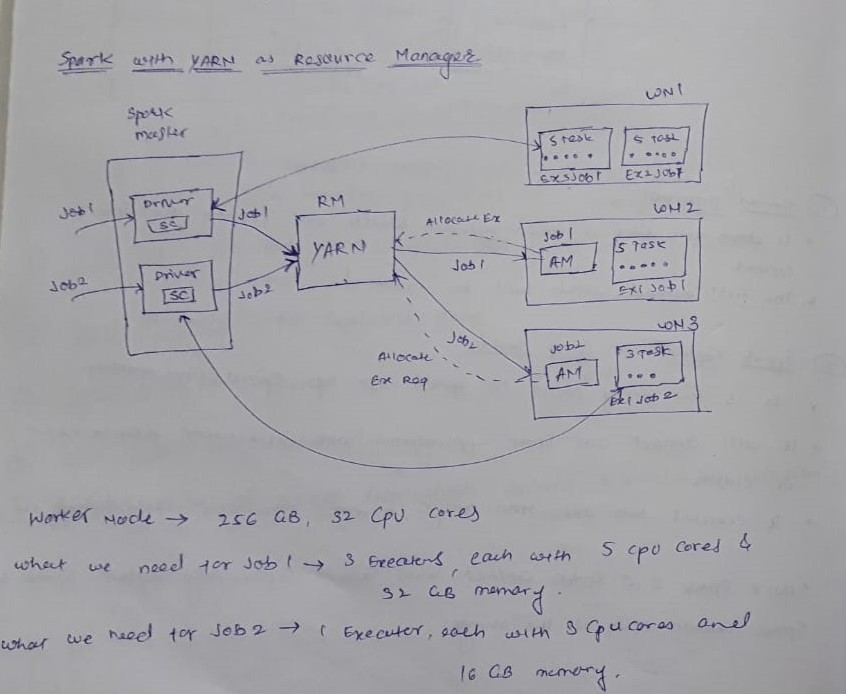 Spark with YARN as Resource Manager
Spark
master
Job1
Driver
SC
Job1
Job2
Driver
SC
Job2
RM
YARN
Allocate Ex
Job1
Job2
Allocate
Ex Req
WN1
5 Task
Ex3Job1
5 Task
Ex2Job1
WN2
Job1
AM
5 Task
Ex1 Job1
WN3
Job2
AM
3 Task
Ex1 Job2
Worker Node → 256 GB, 32 CPU cores
what we need for Job1 → 3 Executers, each with 5 cpu cores &
32 GB memory.
what we need for Job2 → 1 Executer, each with 3 Cpu cores and
16 GB memory.